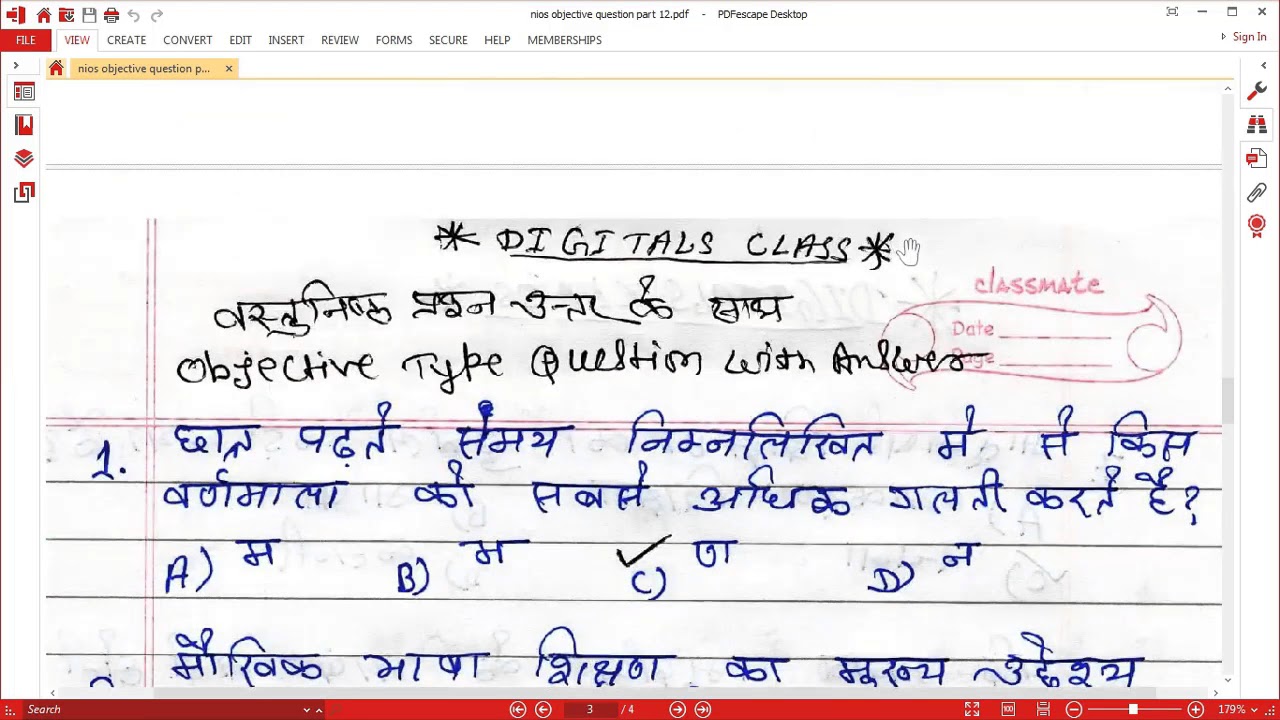 nios objective question part 12.pdf - PDFescape Desktop
FILE VIEW CREATE CONVERT EDIT INSERT REVIEW FORMS SECURE HELP MEMBERSHIPS Sign In
nios objective question p... ×
* DIGITALS CLASS *
classmate
वस्तुनिष्ठ प्रश्न उत्तर के साथ
Date
Page
Objective Type Question with Answer
1. छात्र पढ़ते समय निम्नलिखित मे से किस
वर्णमाला को सबसे अधिक गलती करते है?
A) म B) म C) ण D) न
मौखिक भाषा शिक्षण का मुख्य उद्देश्य
Search 3 / 4 179%